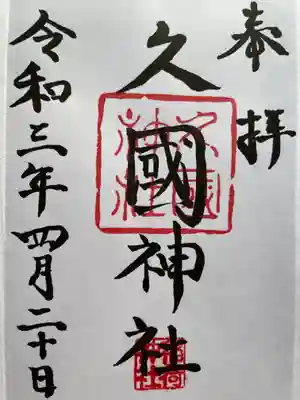 奉拝
久國神社
令和三年四月二十日